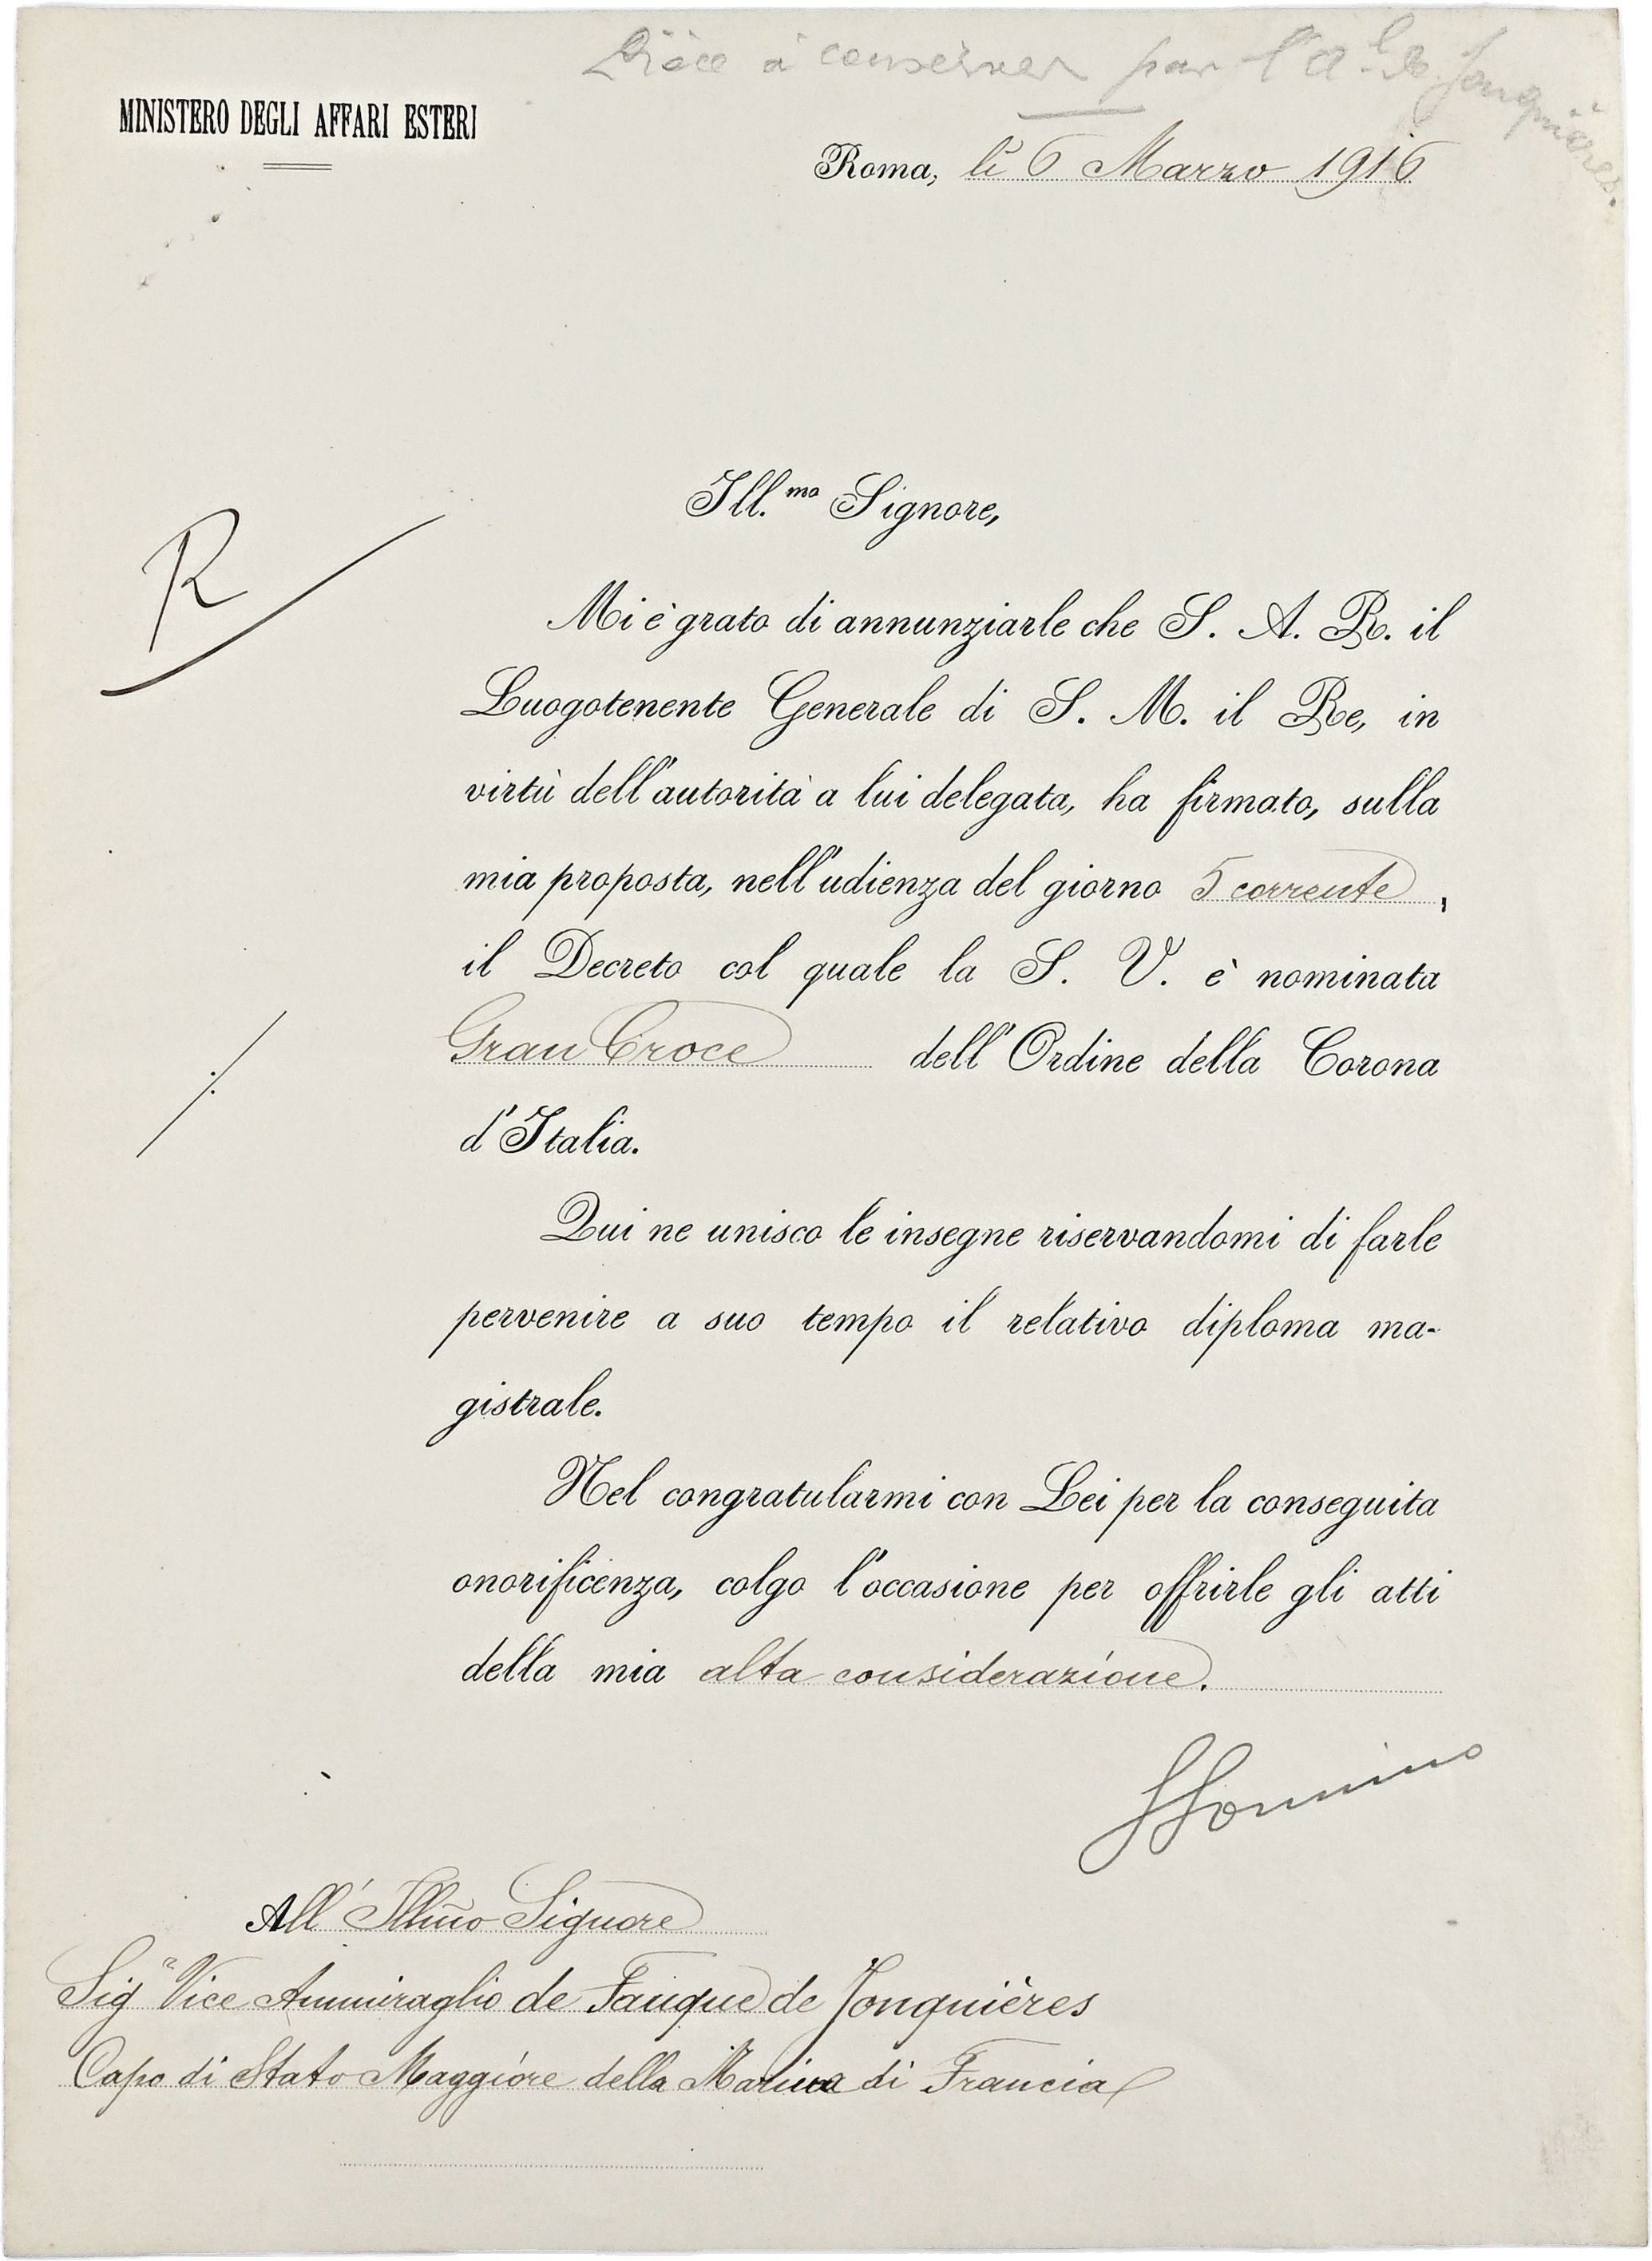 Pièce à conserver par l'A.al de Jonquières.
MINISTERO DEGLI AFFARI ESTERI
Roma, li 6 Marzo 1916
Ill.mo Signore,
R
Mi è grato di annunziarle che S. A. R. il
Luogotenente Generale di S. M. il Re, in
virtù dell'autorità a lui delegata, ha firmato, sulla
mia proposta, nell'udienza del giorno 5 corrente,
il Decreto col quale la S. V. è nominata
Gran Croce dell'Ordine della Corona
d'Italia.
Qui ne unisco le insegne riservandomi di farle
pervenire a suo tempo il relativo diploma ma-
gistrale.
Nel congratularmi con Lei per la conseguita
onorificenza, colgo l'occasione per offrirle gli atti
della mia alta considerazione.
SSonnino
All' Illmo Signore
Sigr Vice Ammiraglio de Fauque de Jonquières
Capo di Stato Maggiore della Marina di Francia